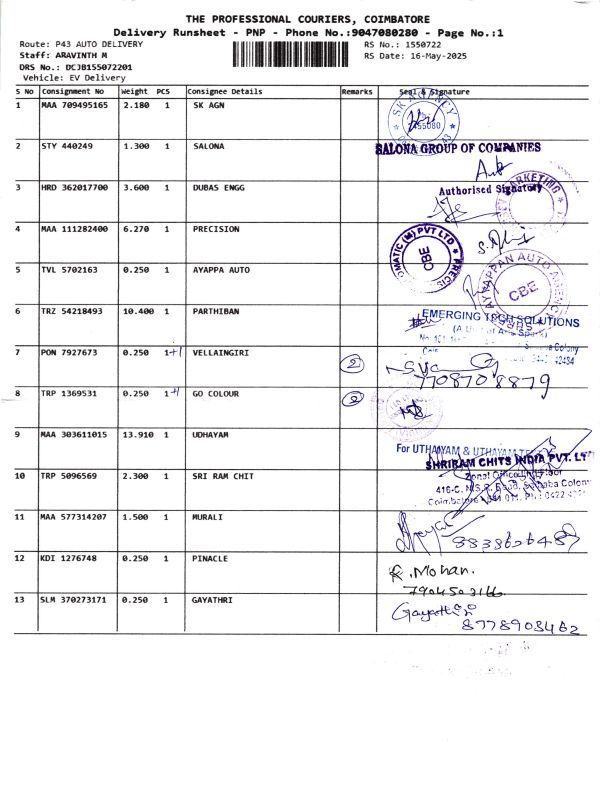 THE PROFESSIONAL COURIERS, COIMBATORE
Delivery Runsheet - PNP - Phone No.:9047080280 - Page No.:1
Route: P43 AUTO DELIVERY RS No.: 1550722
Staff: ARAVINTH M RS Date: 16-May-2025
DRS No.: DCJB155072201
Vehicle: EV Delivery
S No Consignment No Weight PCS Consignee Details Remarks Seal & Signature
1 MAA 709495165 2.180 1 SK AGN
SK AGENCY
2 STY 440249 1.300 1 SALONA
SALONA GROUP OF COMPANIES
3 HRD 362017700 3.600 1 DUBAS ENGG
Authorised Signatory
MARKETING
4 MAA 111282400 6.270 1 PRECISION
MATIC (M) PVT LTD PRECIS
CBE
5 TVL 5702163 0.250 1 AYAPPA AUTO
AYYAPPAN AUTO AGENC
CBE
6 TRZ 54218493 10.400 1 PARTHIBAN
EMERGING TECH SOLUTIONS
7 PON 7927673 0.250 1+1 VELLAINGIRI 2
7708708879
8 TRP 1369531 0.250 1+1 GO COLOUR 2
9 MAA 303611015 13.910 1 UDHAYAM
For UTHAYAM & UTHAYAM
SHRIRAM CHITS INDIA PVT. LT
10 TRP 5096569 2.300 1 SRI RAM CHIT
Zonal Office
416-C, N.S.R. Road, Saibaba Colony
11 MAA 577314207 1.500 1 MURALI
12 KDI 1276748 0.250 1 PINACLE
R. Mohan.
7904503166
13 SLM 370273171 0.250 1 GAYATHRI
Gayathri
8778903462